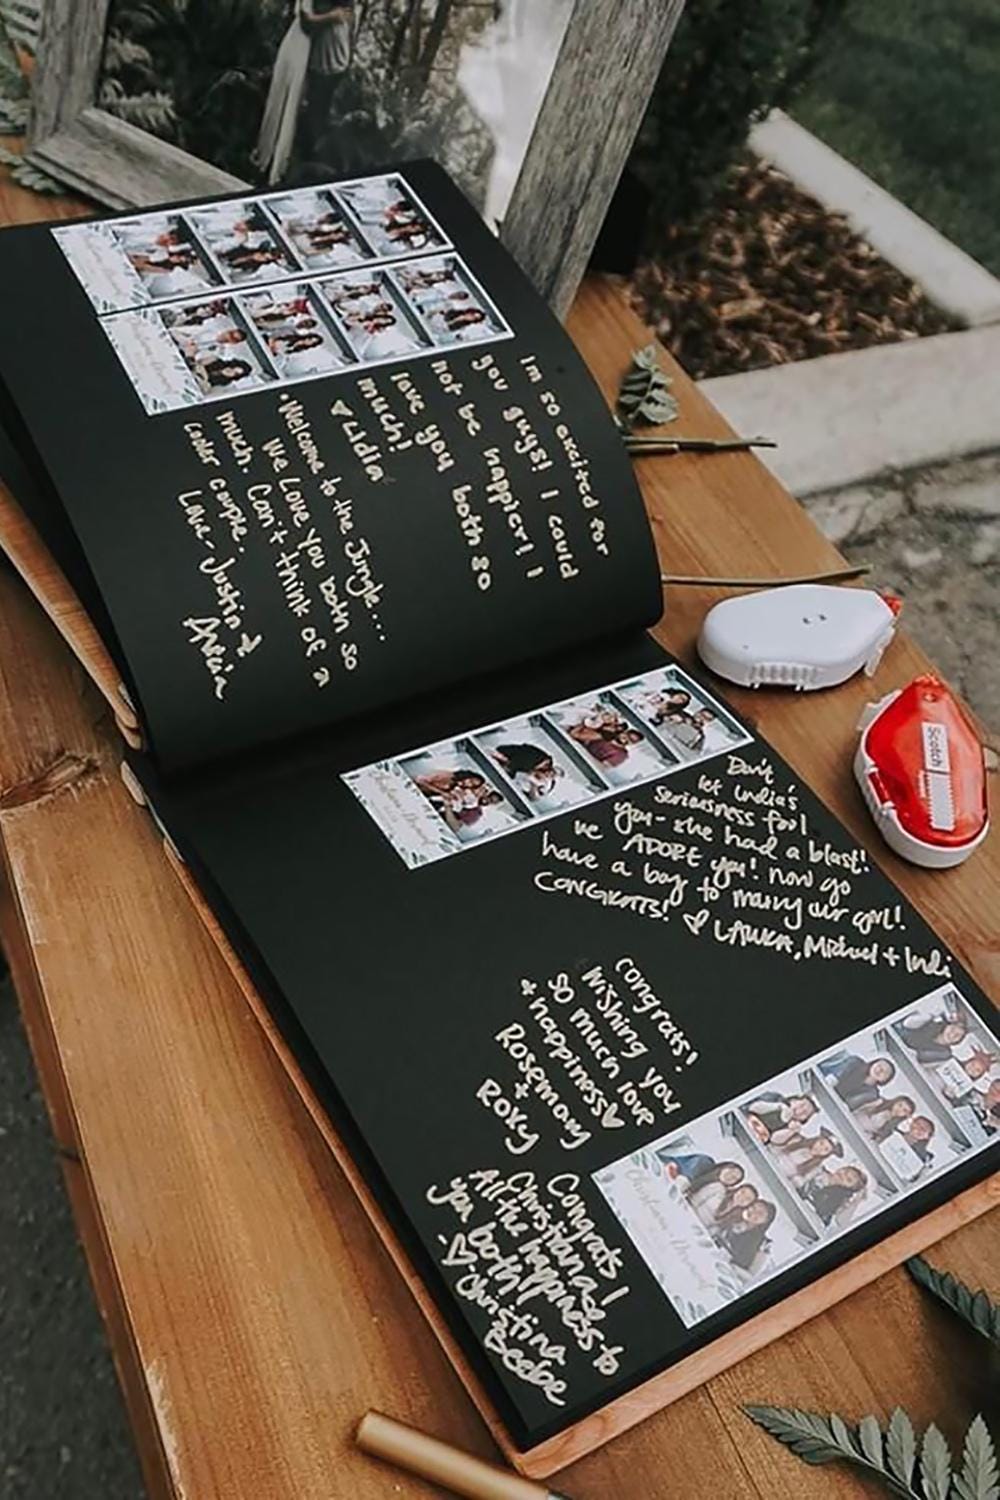 Im so excited for
you guys! I could
not be happier! I
love you both so
much!
♥ Lidia
"Welcome to the Jungle...
We Love You both so
much. Can't think of a
cooler couple.
Love, Justin +
Don't
let India's
Seriousness fool
you - she had a blast!
we ADORE you! now go
have a boy to marry our girl!
CONGRATS! ♡ LAURA, Michael + Indi
congrats!
Wishing you
so much love
+ happiness ♥
Rosemary
+
Roxy
Congrats
Christiana &
All the happiness to
you both!
♡ Christina
Beebe
Scotch